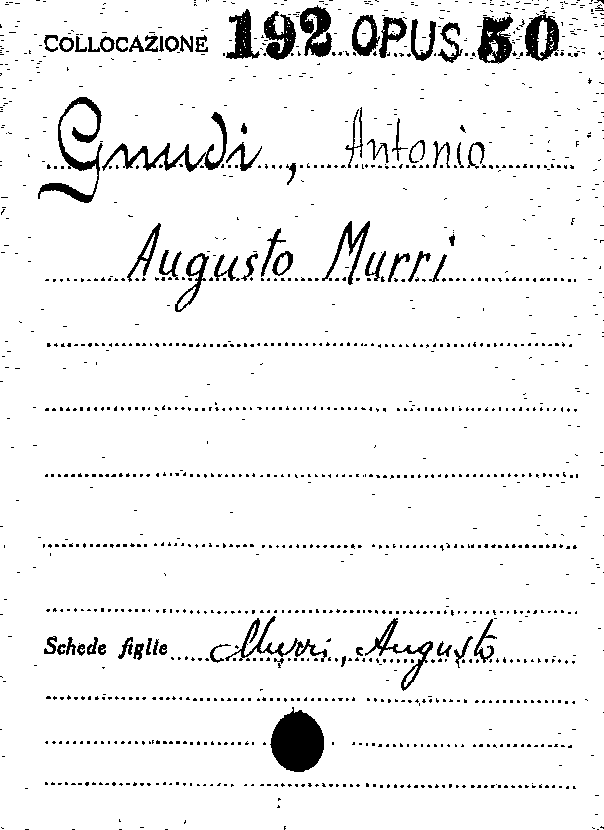 COLLOCAZIONE 192 OPUS 50
Gnudi, Antonio
Augusto Murri
Schede figlie Murri, Augusto